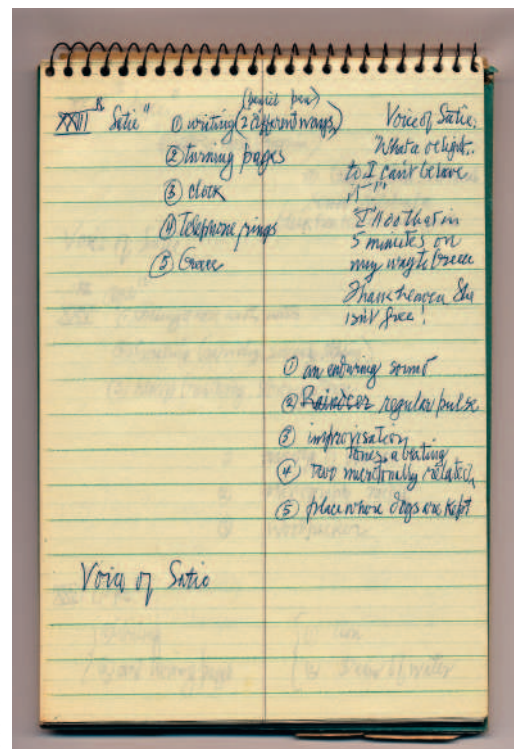 XXIII "Satie"
(pencil pen)
① writing (2 different ways)
② turning pages
③ clock
④ Telephone rings
⑤ Grace
Voice of Satie:
What a delight..
to I can't believe
it!"
I'll do that in
5 minutes on
my way to Greece
Thank heaven She
isn't free!
① an enduring sound
② Raindeer regular pulse
③ improvisation
tones, a beating
④ two microtonally related
⑤ place where dogs are kept
Voice of Satie